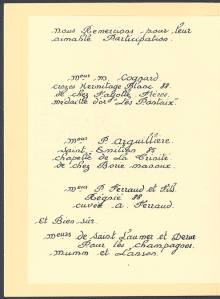 nous Remercions pour leur
aimable Participation.
Meurs M. Cognard
crozes Hermitage Blanc 88
de chez Fayolle Frères.
médaille d'or "Les Pontaix"
Meurs P. Arguillière.
Saint Emilion 85
chapelle de la Trinité
de chez Borie manoux.
Meurs P Ferraud et Fils
Régnié 88
cuvée a. Ferraud.
et Bien sûr
Meurs de Saint Laumer et
Pour les champagnes.
mumm et Lanson.